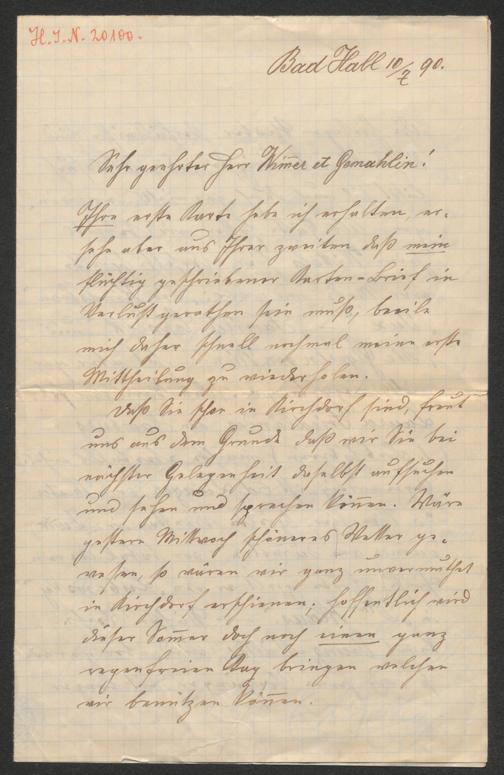 H. I. N. 20100.
Bad Hall 10/7 90.
Sehr geehrter Herr Wimer et Gemahlin!
Ihre erste Karte habe ich erhalten, er-
sehe aber aus Ihrer zweiten daß mein
flüchtig geschriebener Karten-Brief in
Verlust gerathen sein muß, beeile
mich daher schnell nochmal meine erste
Mittheilung zu wiederholen.
Daß Sie schon in Kirchdorf sind, freut
uns aus dem Grunde daß wir Sie bei
nächster Gelegenheit daselbst aufsuchen
und sehen und sprechen können. Wäre
gestern Mittwoch schöneres Wetter ge-
wesen, so wären wir ganz unvermuthet
in Kirchdorf erschienen; hoffentlich wird
dieser Sommer doch noch einen ganz
regenfreien Tag bringen welchen
wir benützen können.